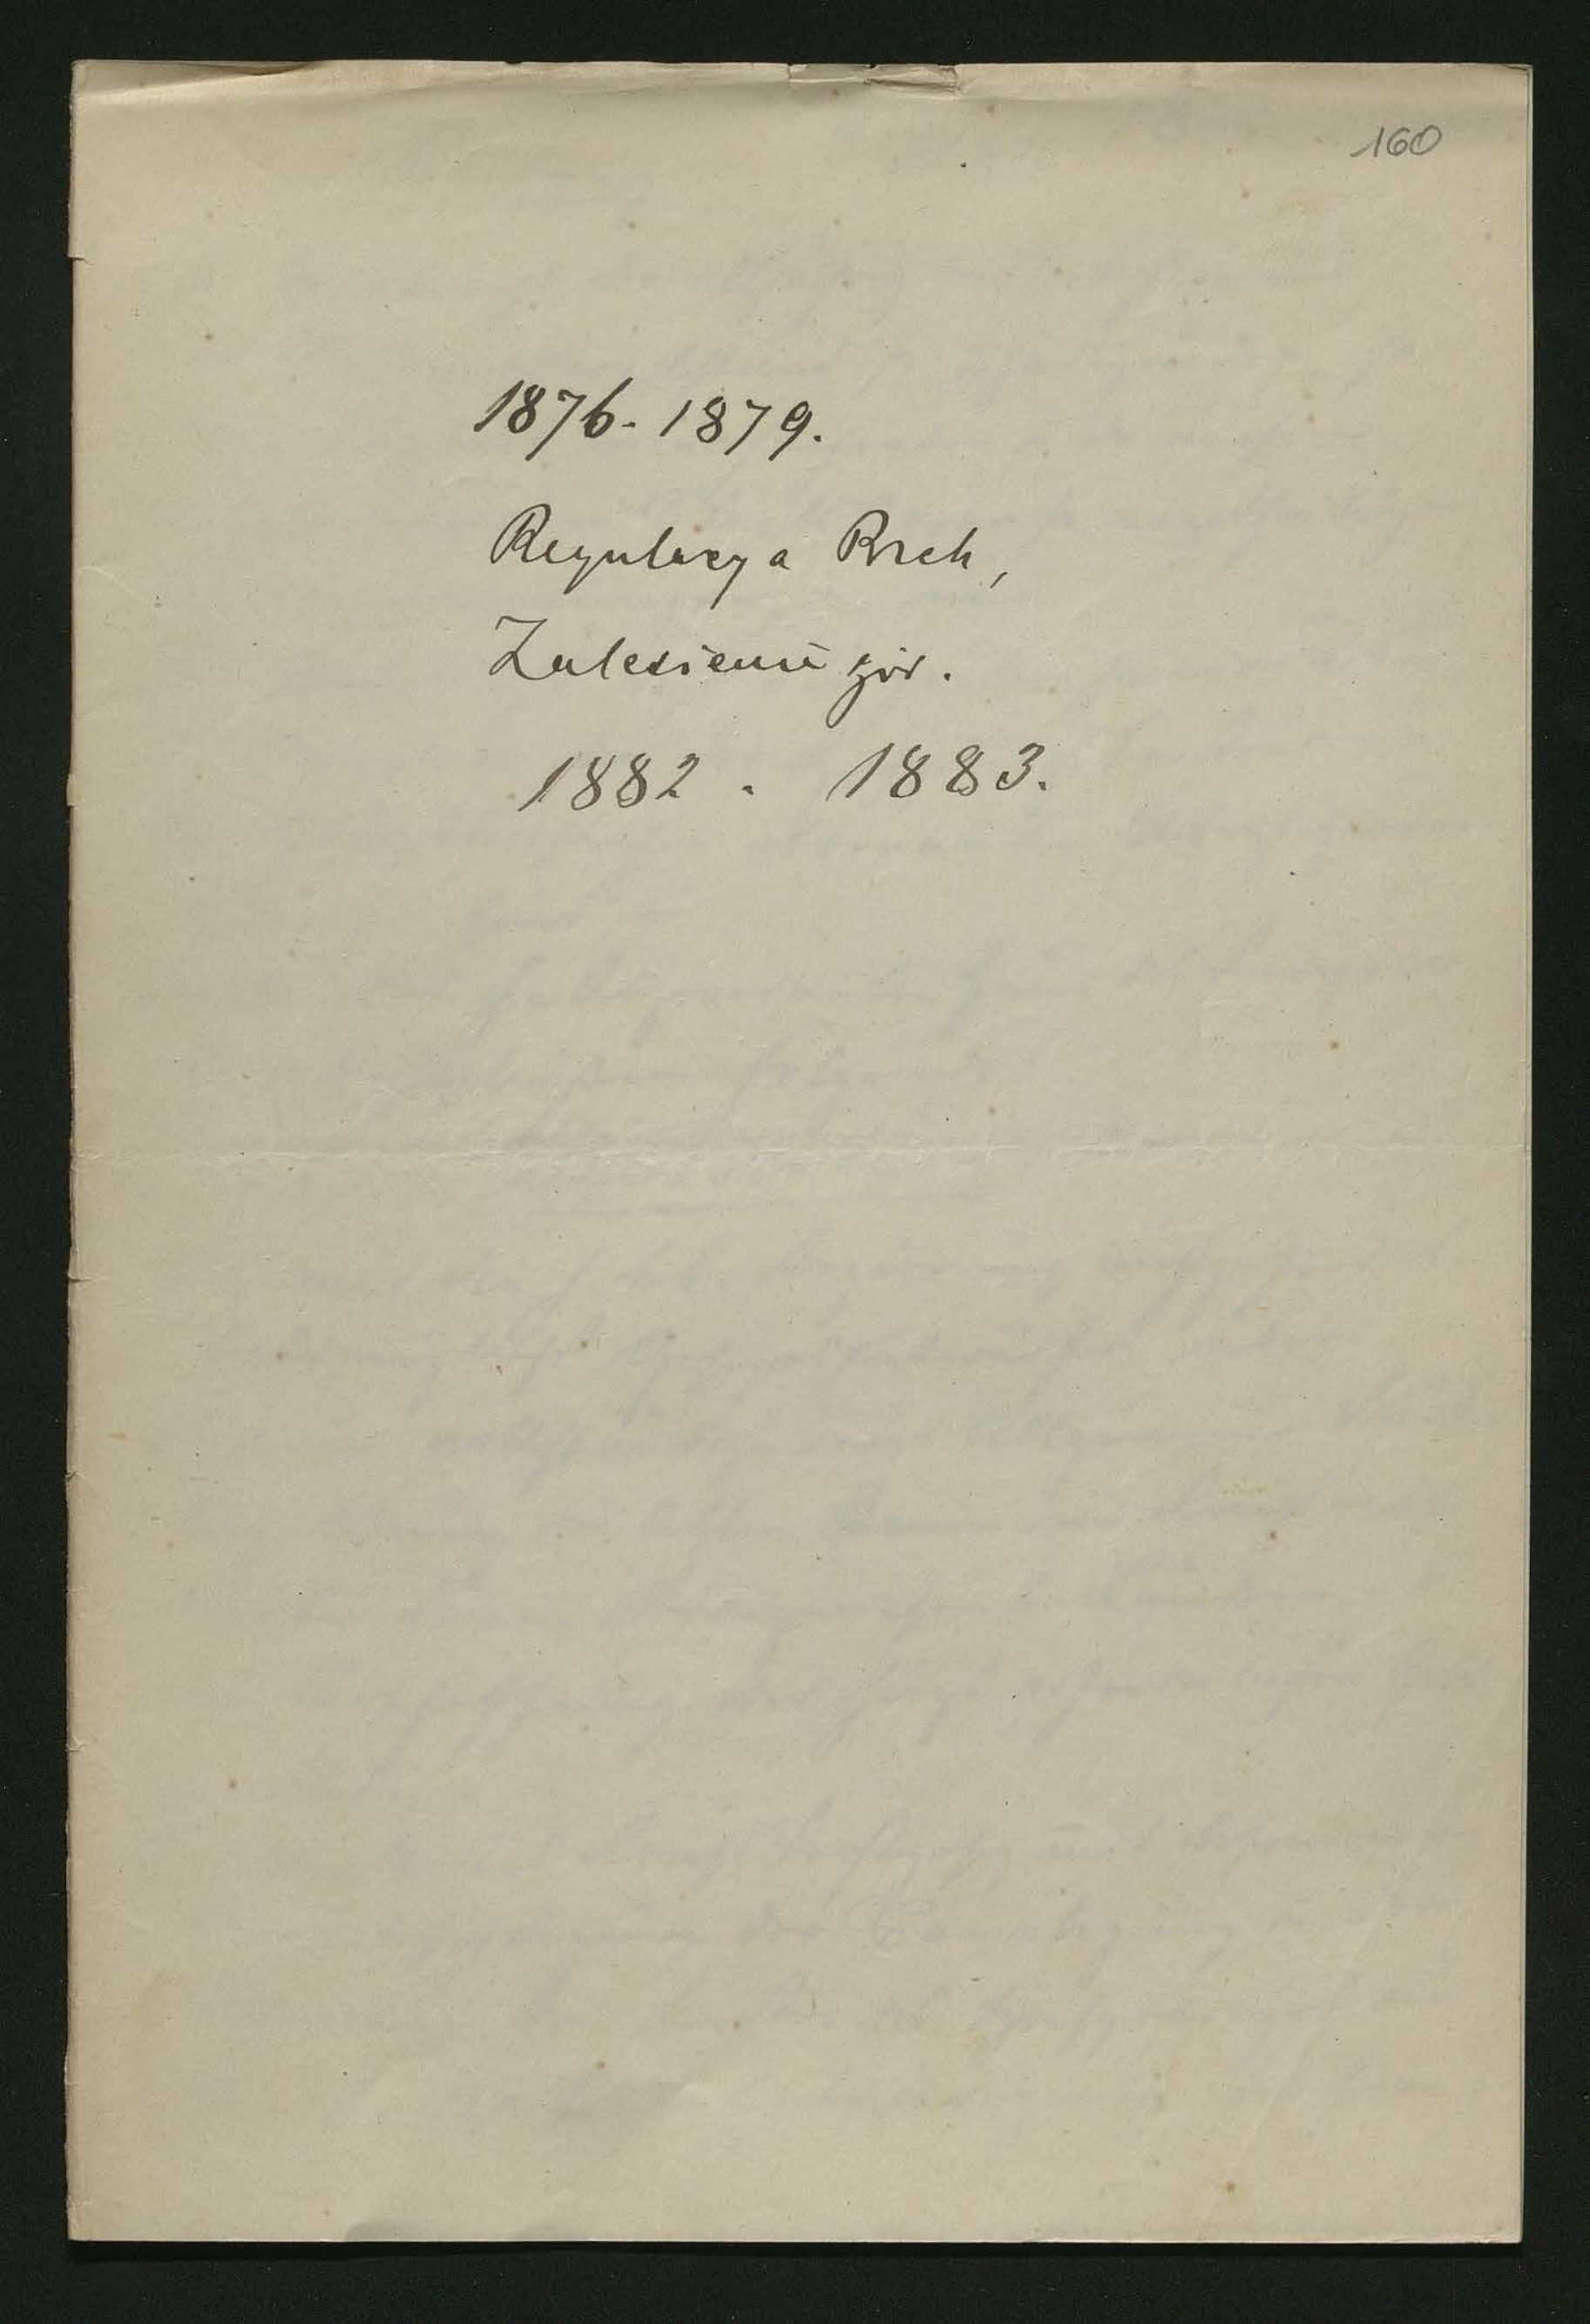 160
1876-1879.
Regulacya Rzek,
Zalesienie gór.
1882. 1883.